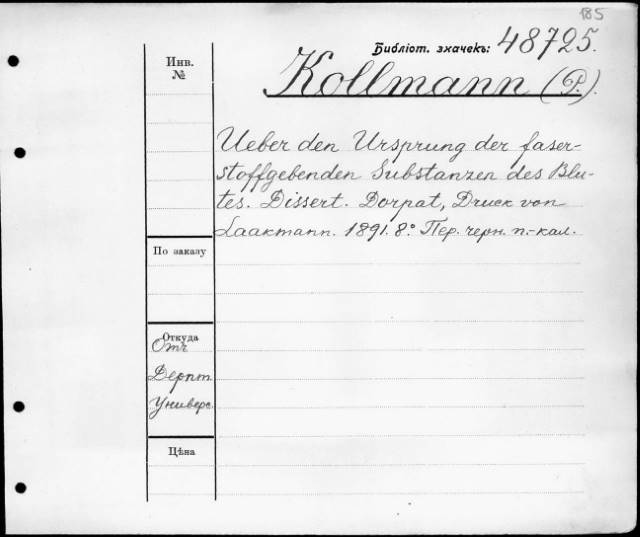 185
Библіот. значекъ: 48725.
Kollmann (P.).
Инв.
№
Ueber den Ursprung der faser-
stoffgebenden Substanzen des Blu-
tes. Dissert. Dorpat, Druck von
Laakmann. 1891. 8.° Пер. черн. п.-кал.
По заказу
Откуда
Отъ
Дерпт.
Универс.
Цѣна